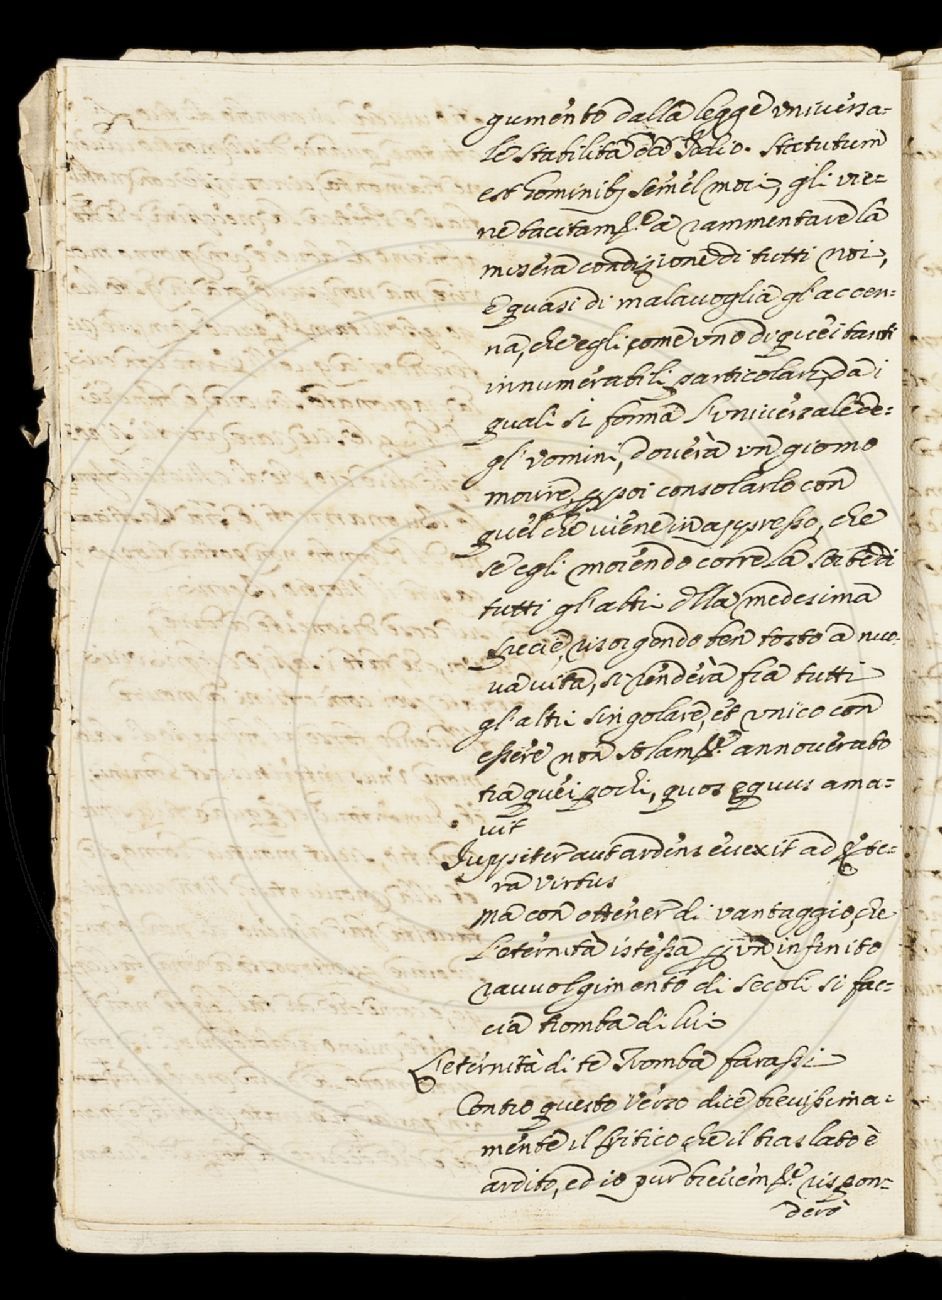 gumento dalla legge vniuersa=
le stabilita da Iddio. Statutum
est hominibꝫ semel mori, gli vie=
ne tacitamte. a rammentare la
misera condizione di tutti noi,
e quasi di malauoglia gl'accen=
na, che egli come vno di quei tanti
innumerabili particolari, da i
quali si forma l'vniuersale de=
gl'vomini, douerà vn giorno
morire, per poi consolarlo con
quel che viene in appresso, che
se egli morendo corre la sorte di
tutti gl'altri della medesima
specie, risorgendo ben tosto a nuo=
ua vita, si renderà fra tutti
gl'altri singolare, et vnico con
essere non solamte. annouerato
tra quei pochi, quos equus ama=
uit
Iuppiter aut ardens euexit ad ęte=
ra virtus
ma con ottener di vantaggio, che
l'eternità istessa per vn infinito
rauuolgimento di secoli si fac=
cia tromba di lui
L'eternità di te Tromba farassi
Contro questo verso dice breuissima=
mente il Critico che il traslato è
ardito, ed io pur breuemte. rispon=
derò